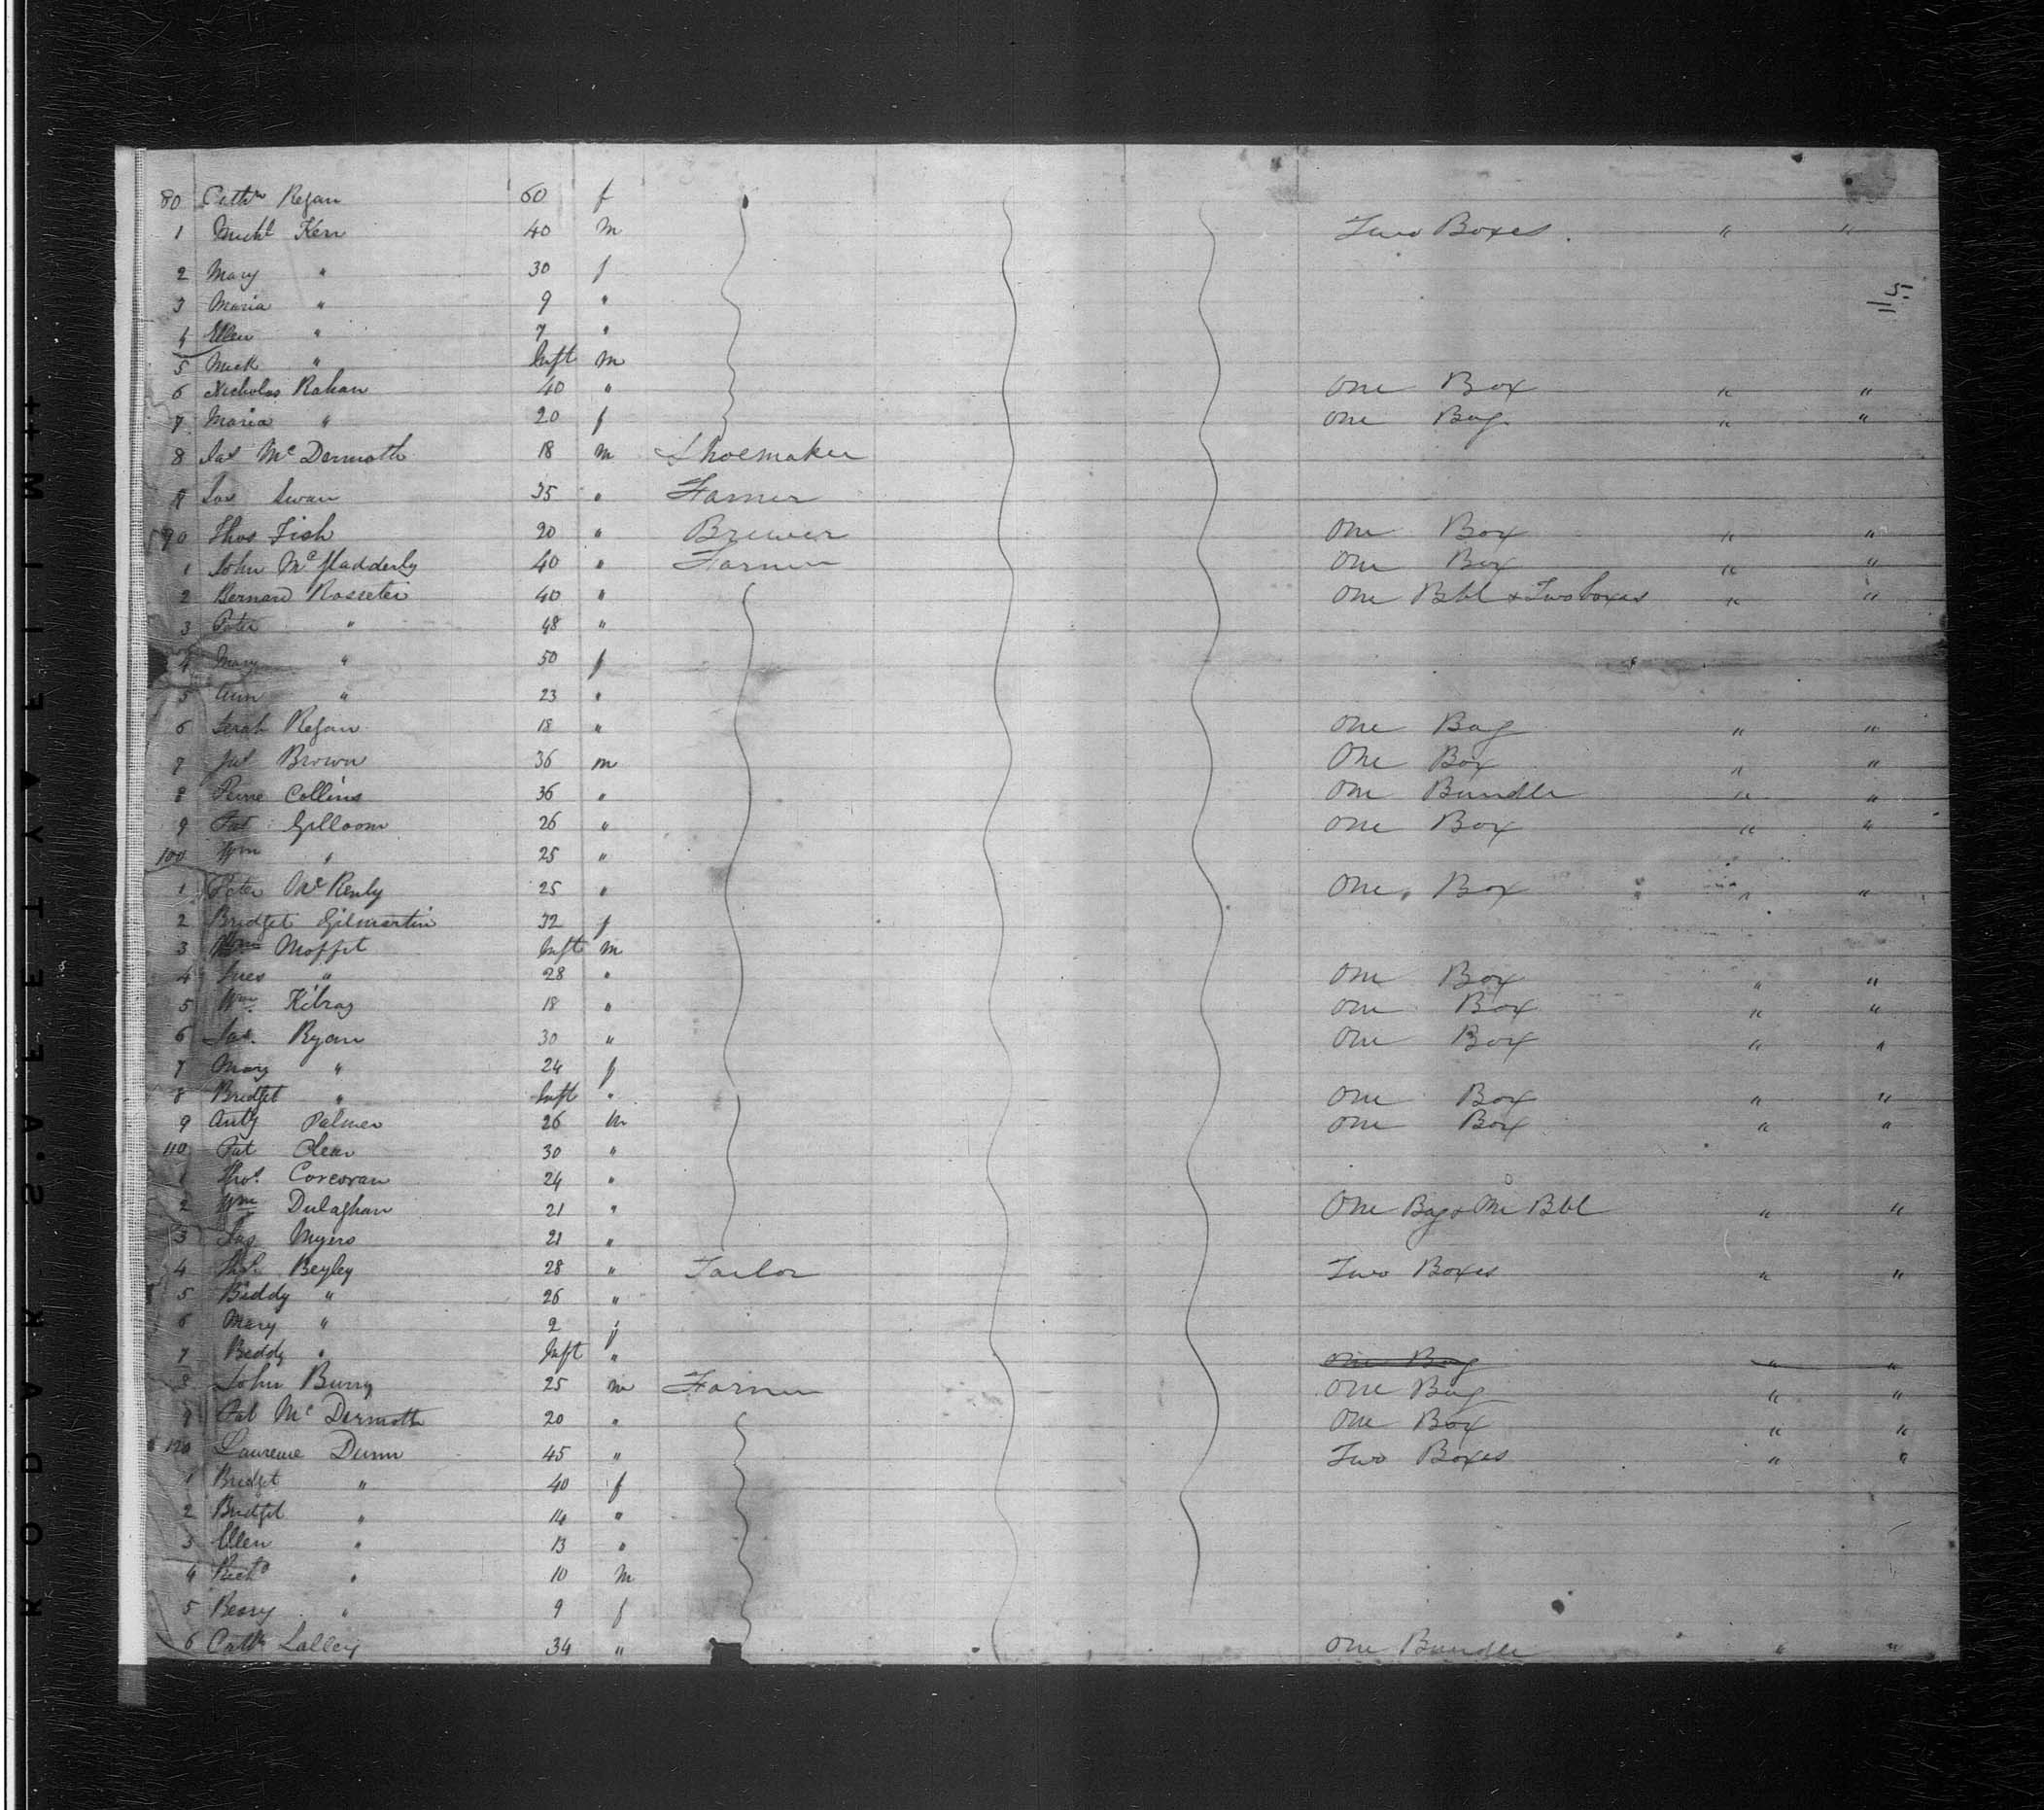 80 Cathn Regan 60 f
1 Michl Kerr 40 m Two Boxes . " "
2 Mary " 30 f
3 Maria " 9 "
4 Ellen " 7 "
5 Mick " Inft m
6 Nicholas Rahan 40 " One Box " "
7 Maria " 20 f One Bag " "
8 Jas Mc Dermoth 18 m Shoemaker
9 Jas Swan 35 " Farmer
90 Thos Fish 20 " Brewer One Box " "
1 John Mc 40 " Farmer One Box " "
2 Bernard Rosseter 40 " One Bbl & Two boxes " "
3 Peter " 48 "
4 Mary " 50 f
5 Ann " 23 "
6 Sarah Regan 18 " One Bag " "
7 Jas Brown 36 m One Box " "
8 Collins 36 " One Bundle " "
9 Pat Gilloom 26 " One Box " "
100 Wm " 25 "
1 Peter Mc Renly 25 " One Box " "
2 Bridget Gilmartin 32 f
3 Moffit Inft m
4 " 28 " One Box " "
5 Wm Kilray 18 " One Box " "
6 Jas. Ryan 30 " One Box " "
7 Mary " 24 f
8 Bridget " Inft " One Box " "
9 Anty Palmer 26 m One Box " "
110 Pat Clear 30 "
1 Thos Corcoran 24 "
2 Wm Dulaghan 21 " One Bag & One Bbl " "
3 Jas Myers 21 "
4 Thos. Begley 28 " Tailor Two Boxes " "
5 Biddy " 26 "
6 Mary " 2 f
7 Biddy " Inft " One Bag " "
8 John Burry 25 m Farmer One Bag " "
9 Pat Mc Dermoth 20 " One Box " "
120 Laurence Dunn 45 " Two Boxes " "
1 Bridget " 40 f
2 Bridget " 14 "
3 Ellen " 13 "
4 Richd " 10 m
5 Bessy " 9 f
6 Cathn Lalley 34 " One Bundle " "
RODAR S.A. ETEYAEIM++